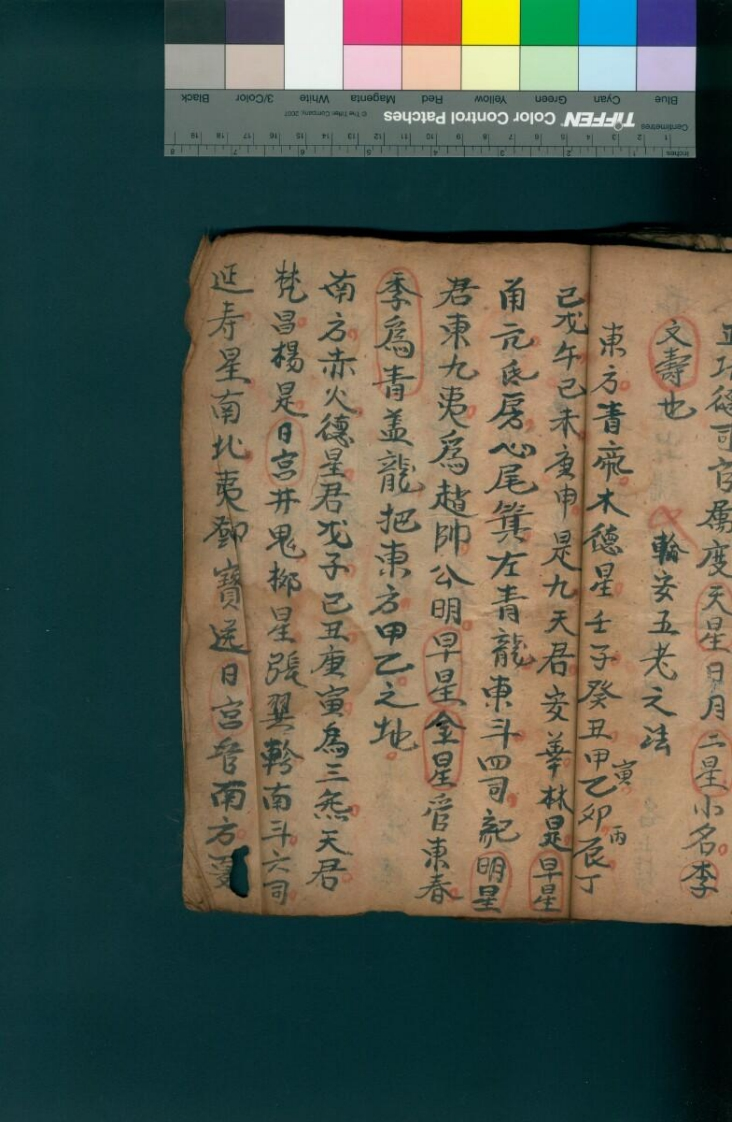 正功德司官屬度天星日月二星小名李
文壽也
輪安五老之法
東方青帝木德星壬子癸丑甲寅乙卯丙辰丁
己戊午己未庚申是九天君安華林是早星
角亢氐房心尾箕左青龍東斗四司記明星
君東九夷為趙帥公明早星金星管東春
季為青盖龍把東方甲乙之地
南方赤火德星君戊子己丑庚寅為三炁天君
梵昌楊是日宮井鬼柳星張翼軫南斗六司
延寿星南北夷鄧寶送日宮管南方夏
Inches
Centimetres
TIFFEN Color Control Patches
© The Tiffen Company, 2007
Blue Cyan Green Yellow Red Magenta White 3/Color Black
1 2 3 4 5 6 7 8
1 2 3 4 5 6 7 8 9 10 11 12 13 14 15 16 17 18 19